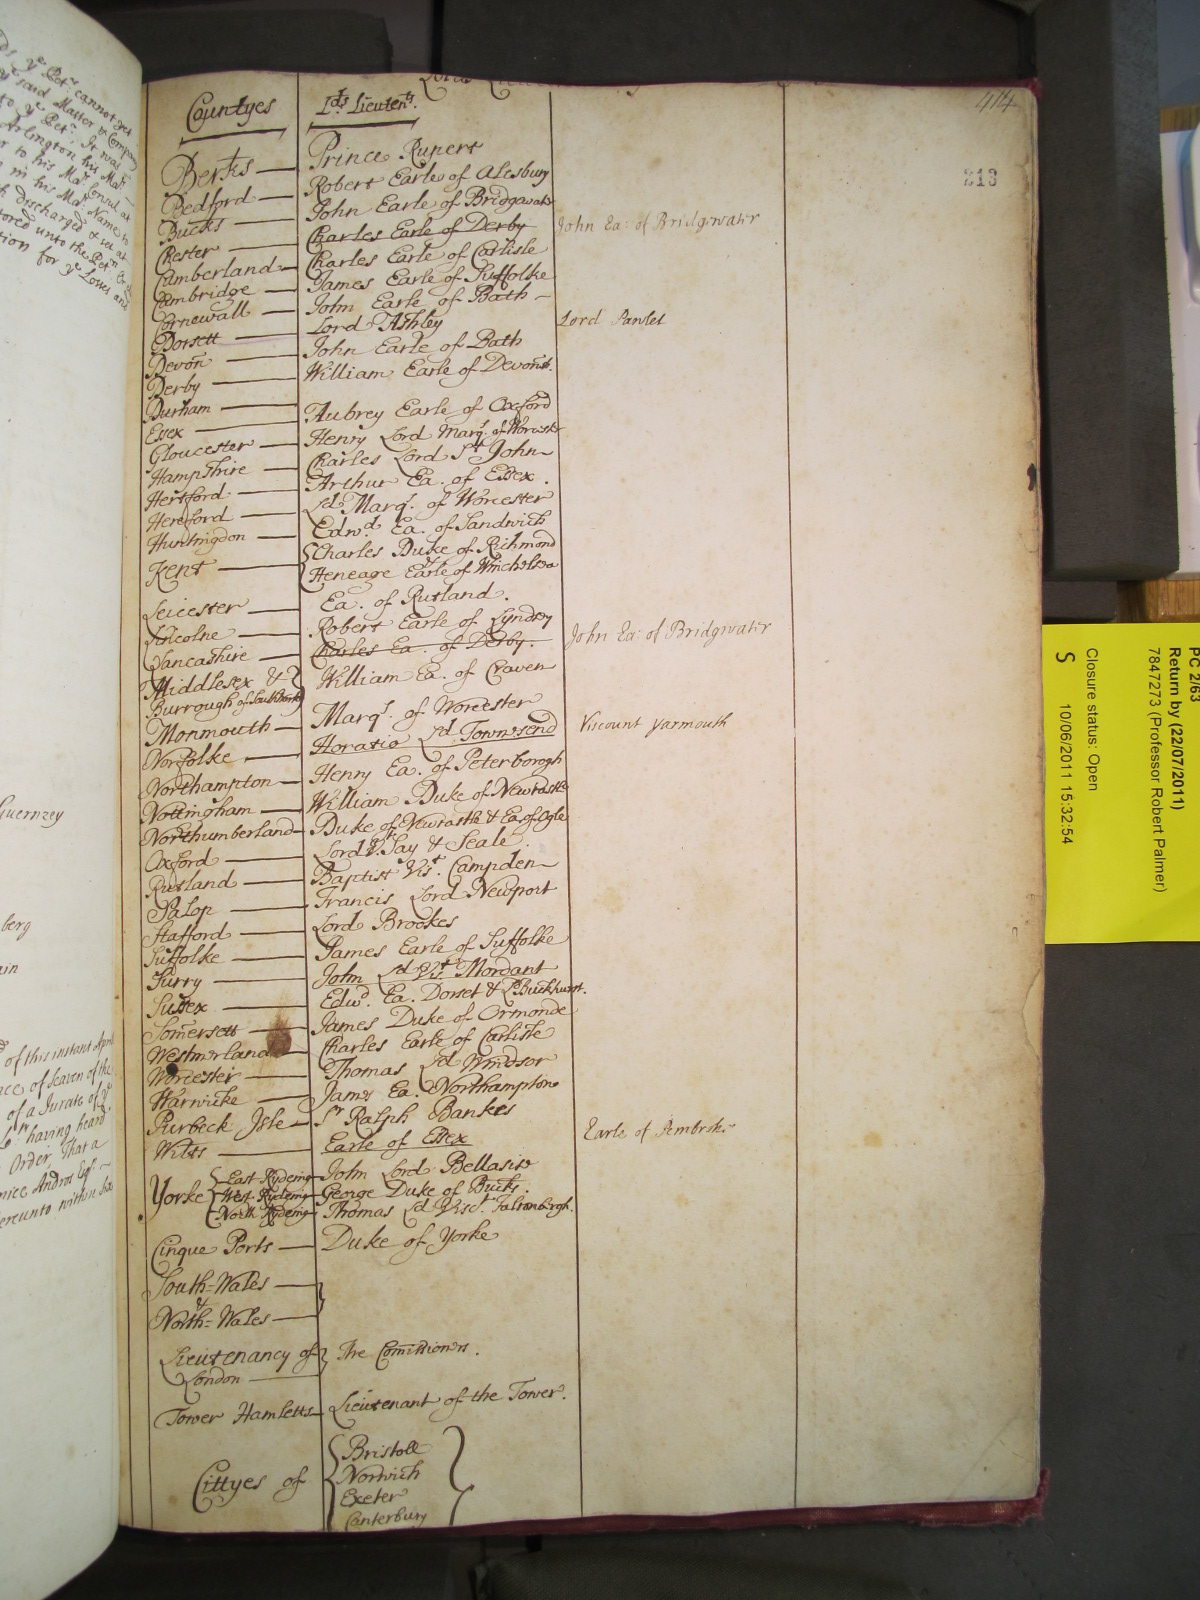 ye Petr. cannot get
said Master & Company
to ye Petr. It was
Arlington his Mats.
to his Mats. Consul at
in his Mats Name to
discharged & set at
tored unto the Petr.
tion for ye Losses and
Guernzey
berg
of this instant April
ace of Seaven of the
of a Jurate of ye
having heard
Order, That a
nice Andros Esqr.
ereunto within
414
213
Countyes Lds Lieutents.
Berks Prince Rupert
Bedford Robert Earle of Alesbury
Bucks John Earle of Bridgewater
Chester Charles Earle of Derby John Ea: of Bridgwater
Cumberland Charles Earle of Carlisle
Cambridge James Earle of Suffolke
Cornewall John Earle of Bath
Dorsett Lord Ashley Lord Pawlet
Devon John Earle of Bath
Derby William Earle of Devonsh.
Durham
Essex Aubrey Earle of Oxford
Gloucester Henry Lord Marqs. of Worcestr
Hampshire Charles Lord St. John
Hertford Arthur Ea. of Essex.
Hereford Ld. Marqs. of Worcester
Huntingdon Edwd. Ea. of Sandwich
Kent { Charles Duke of Richmond
Heneage Earle of Winchelsea
Leicester Ea. of Rutland.
Lincolne Robert Earle of Lyndsey
Lancashire Charles Ea. of Derby. John Ea: of Bridgwater
Middlesex & } William Ea. of Craven
Burrough of Southwark
Monmouth Marqs. of Worcester
Norfolke Horatio Ld. Townsend Viscount Yarmouth
Northampton Henry Ea. of Peterborogh
Nottingham William Duke of Newcastle
Northumberland Duke of Newcastle & Ea. of Ogle
Oxford Lord V. Say & Seale.
Rutland Baptist Vist. Campden
Salop Francis Lord Newport
Stafford Lord Brookes
Suffolke James Earle of Suffolke
Surry John Ld. Vist. Mordant
Sussex Edwd. Ea. Dorset & Ld. Buckhurst.
Somersett James Duke of Ormonde
Westmerland Charles Earle of Carlisle
Worcester Thomas Ld Windsor
Warwicke James Ea. Northampton
Purbeck Isle Sr Ralph Bankes
Wilts Earle of Essex Earle of Pembroke
Yorke { East Rydeing John Lord Bellasise
West Rydeing George Duke of Bucks.
North Rydeing Thomas Ld Visct. Falconbrgh.
Cinque Ports Duke of Yorke
South-Wales }
&
North-Wales
Lieutenancy of } The Comissionrs.
London
Tower Hamletts Lieutenant of the Tower.
Cittyes of { Bristoll }
Norwich
Exeter
Canterbury
PC 2/63
Return by (22/07/2011)
7847273 (Professor Robert Palmer)
Closure status: Open
S 10/06/2011 15:32:54